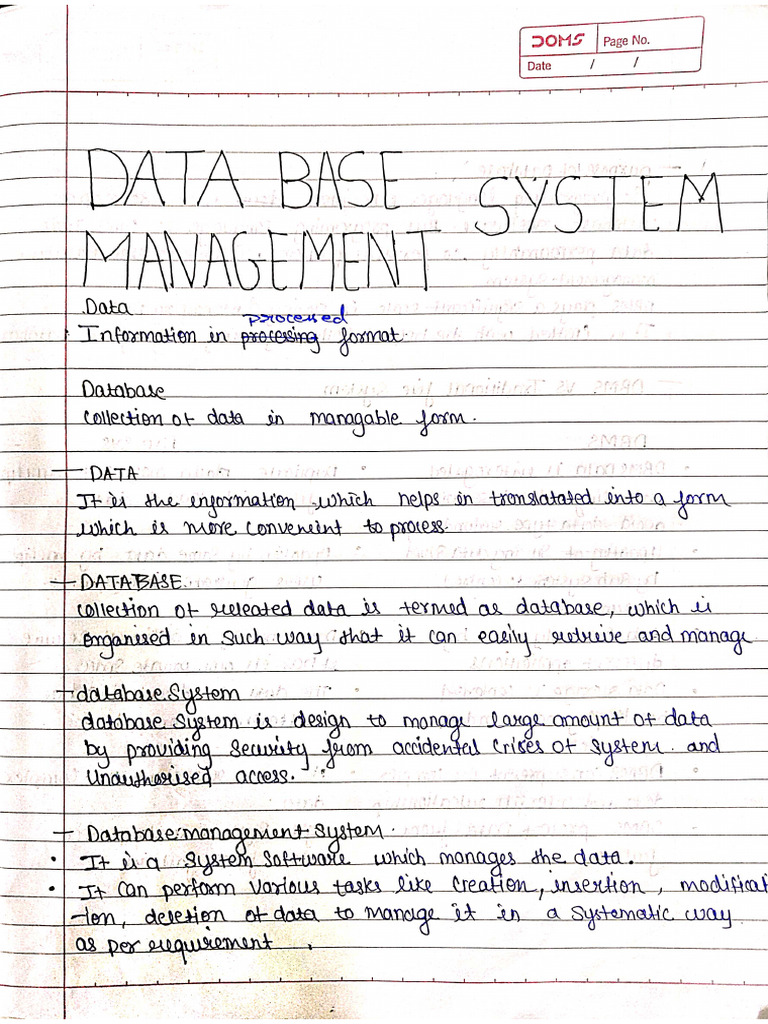 DOMS Page No.
Date / /
DATA BASE SYSTEM
MANAGEMENT
Data
processed
Information in procesing format
Database
collection of data in managable form.
— DATA
It is the information which helps in translatated into a form
which is more convenient to process.
— DATABASE.
collection of releated data is termed as database, which is
organised in such way that it can easily retrieve and manage
— database System
database system is design to manage large amount of data
by providing security from accidental crises of system and
Unauthorised access.
— Database management system.
• It is a system software which manages the data.
• It can perform various tasks like creation, insertion, modificat
-ion, deletion of data to manage it in a systematic way
as per requirement.